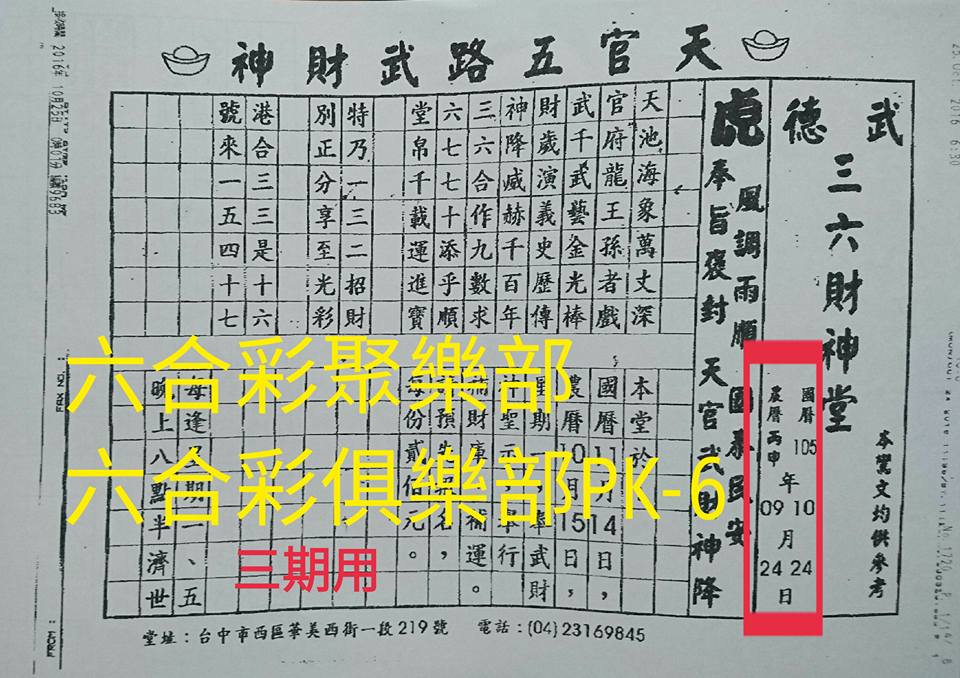 天官五路武財神
武德
三六財神堂
本鸞文均供參考
國曆 105 年 10 月 24 日
農曆 丙申 09 月 24 日
風調雨順 國泰民安
虎 奉旨褒封 天官武財神降
天池海象萬丈深
官府龍王孫者戲
武千武藝金光棒
財歲演義史歷傳
神降威赫千百年
三六合作九數求
六七七十添乎順
堂帛千載運進寶
特乃一三二招財
別正分享至光彩
港合三三是十六
號來一五四十七
本堂於
國曆11月14日,
農曆10月15日,
星期一 武財
神聖示 行
補財庫 補運。
預先 名,
每份貳佰元。
每逢星期 、五
晚上八點半濟世
六合彩聚樂部
六合彩俱樂部PK-6
三期用
堂址:台中市西區華美西街一段219號 電話:(04)23169845